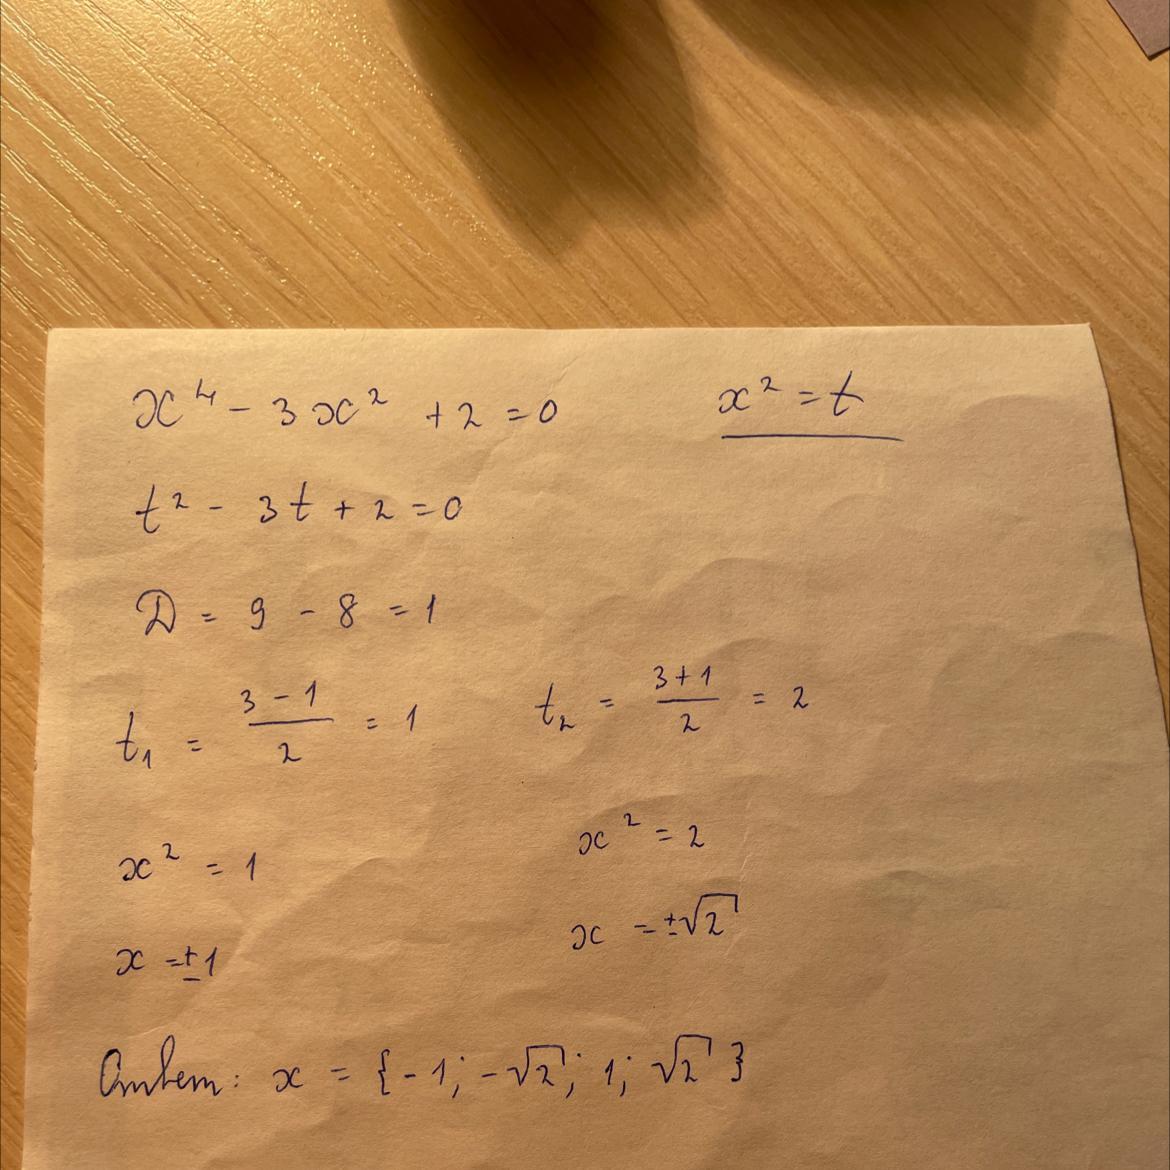 x⁴ - 3x² + 2 = 0    x² = t
t² - 3t + 2 = 0
D = 9 - 8 = 1
t₁ = (3 - 1)/2 = 1    t₂ = (3 + 1)/2 = 2
x² = 1    x² = 2
x = ±1    x = ±√2
Ответ: x = {-1; -√2; 1; √2}